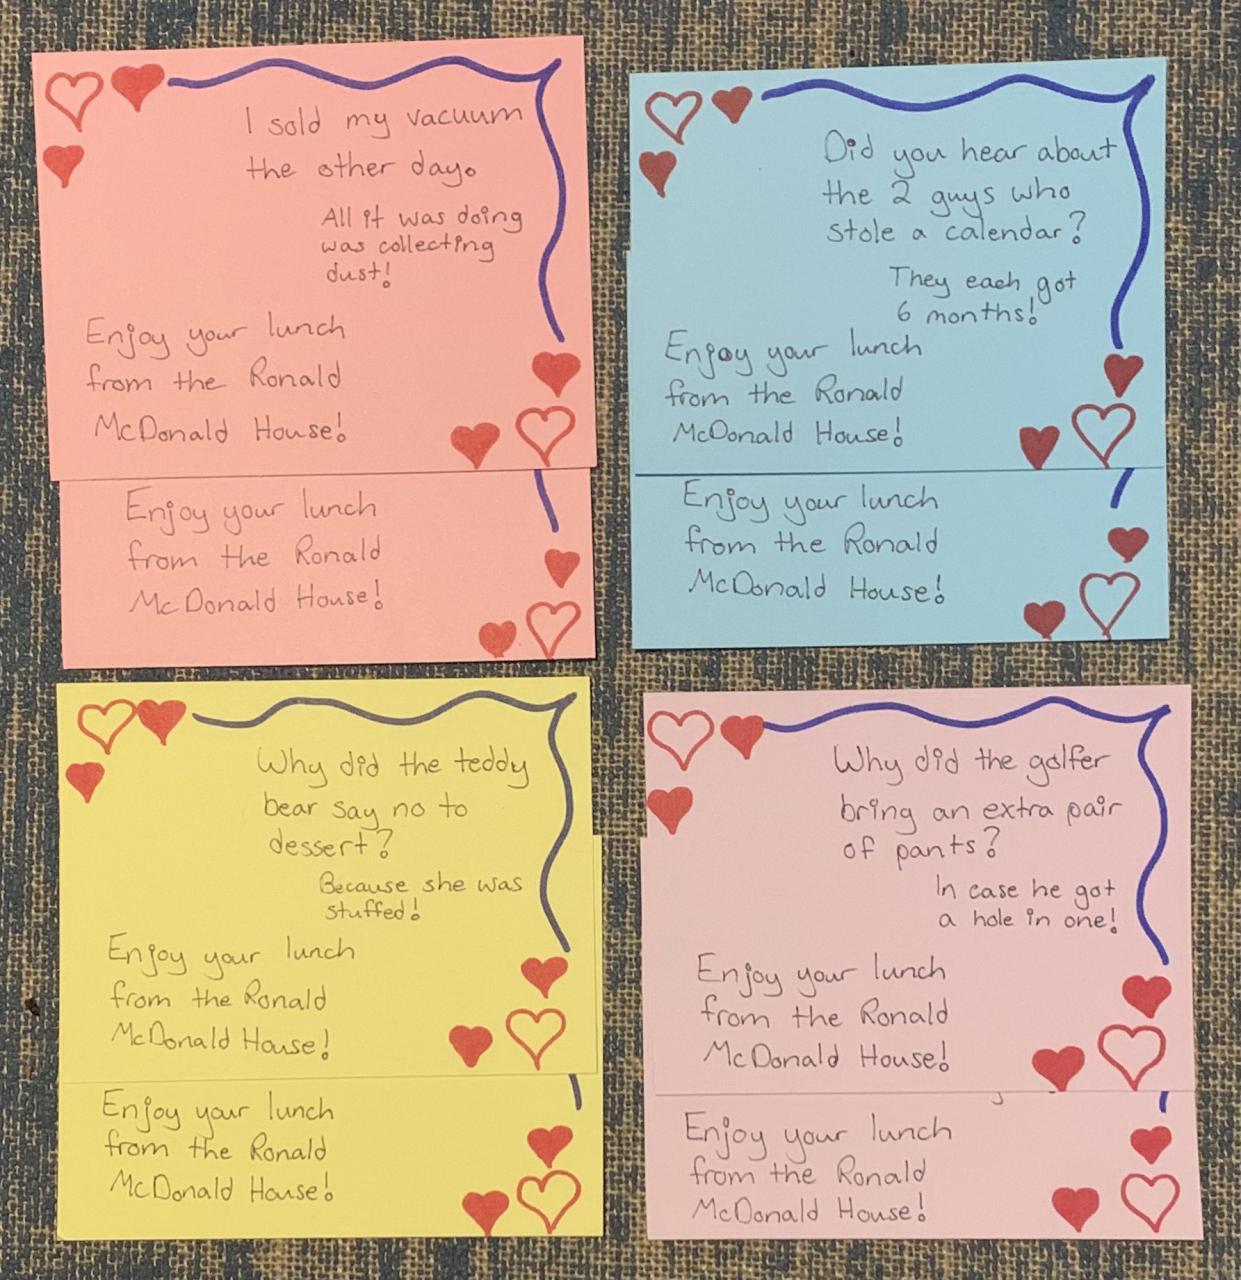 I sold my vacuum
the other day.
All it was doing
was collecting
dust!
Enjoy your lunch
from the Ronald
McDonald House!
Enjoy your lunch
from the Ronald
McDonald House!
Did you hear about
the 2 guys who
stole a calendar?
They each got
6 months!
Enjoy your lunch
from the Ronald
McDonald House!
Enjoy your lunch
from the Ronald
McDonald House!
Why did the teddy
bear say no to
dessert?
Because she was
stuffed!
Enjoy your lunch
from the Ronald
McDonald House!
Enjoy your lunch
from the Ronald
McDonald House!
Why did the golfer
bring an extra pair
of pants?
In case he got
a hole in one!
Enjoy your lunch
from the Ronald
McDonald House!
Enjoy your lunch
from the Ronald
McDonald House!